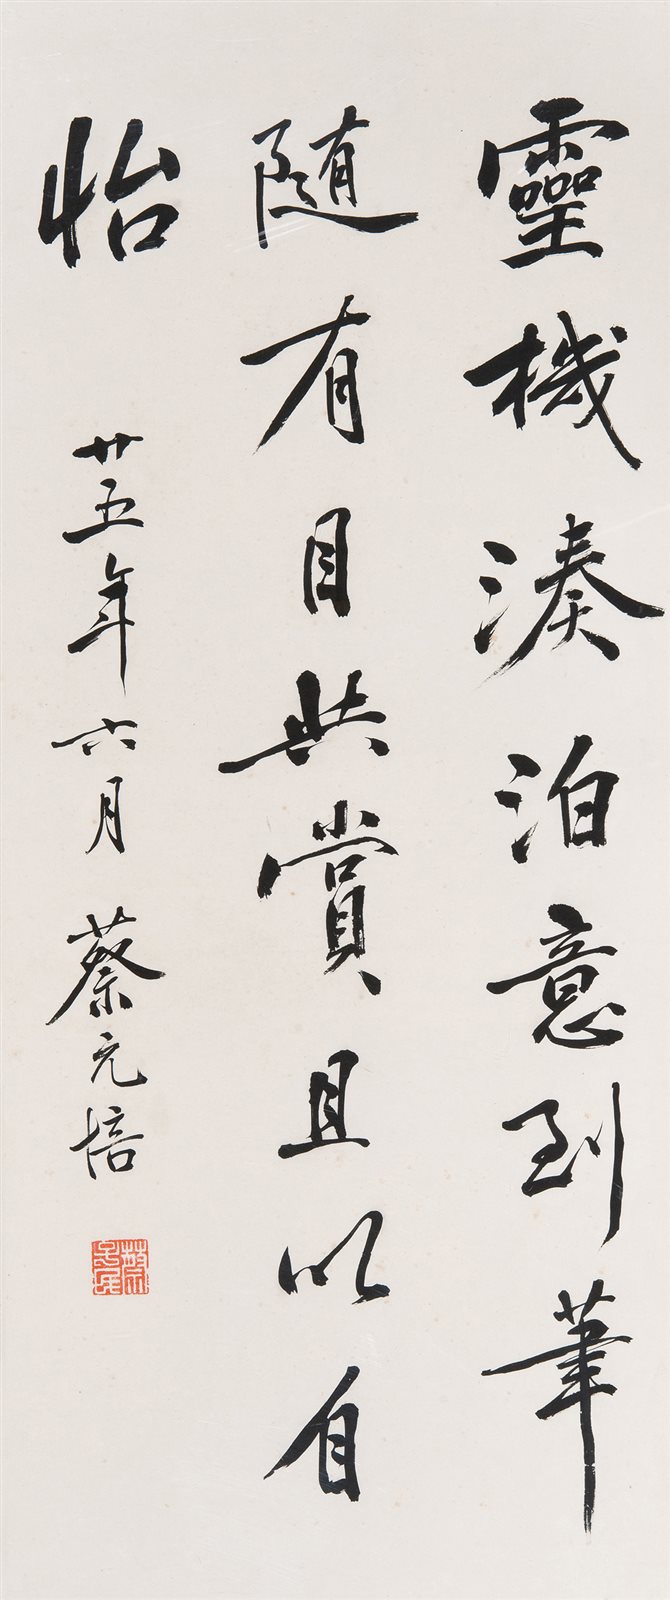 靈機湊泊意到筆
隨有目共賞且以自
怡
廿五年六月蔡元培